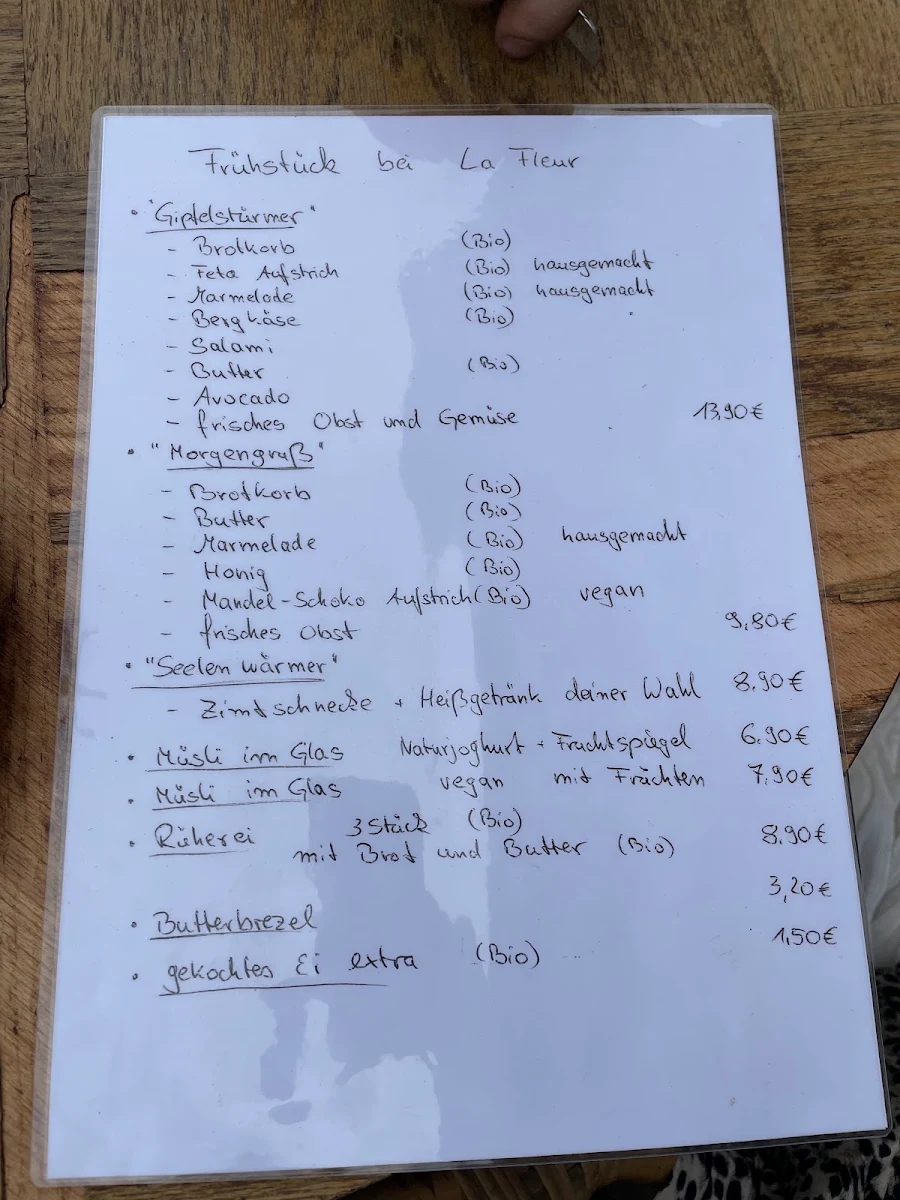 Frühstück bei La Fleur
• "Gipfelstürmer"
- Brotkorb (Bio)
- Feta Aufstrich (Bio) hausgemacht
- Marmelade (Bio) hausgemacht
- Bergkäse (Bio)
- Salami
- Butter (Bio)
- Avocado
- frisches Obst und Gemüse 13,90€
• "Morgengruß"
- Brotkorb (Bio)
- Butter (Bio)
- Marmelade (Bio) hausgemacht
- Honig (Bio)
- Mandel-Schoko Aufstrich (Bio) vegan
- frisches Obst 9,80€
• "Seelen wärmer"
- Zimtschnecke + Heißgetränk deiner Wahl 8.90€
• Müsli im Glas Naturjoghurt + Fruchtspiegel 6.90€
• Müsli im Glas vegan mit Früchten 7,90€
• Rüherei 3 Stück (Bio)
mit Brot und Butter (Bio) 8.90€
• Butterbrezel 3,20€
• gekochtes Ei extra (Bio) 1,50€